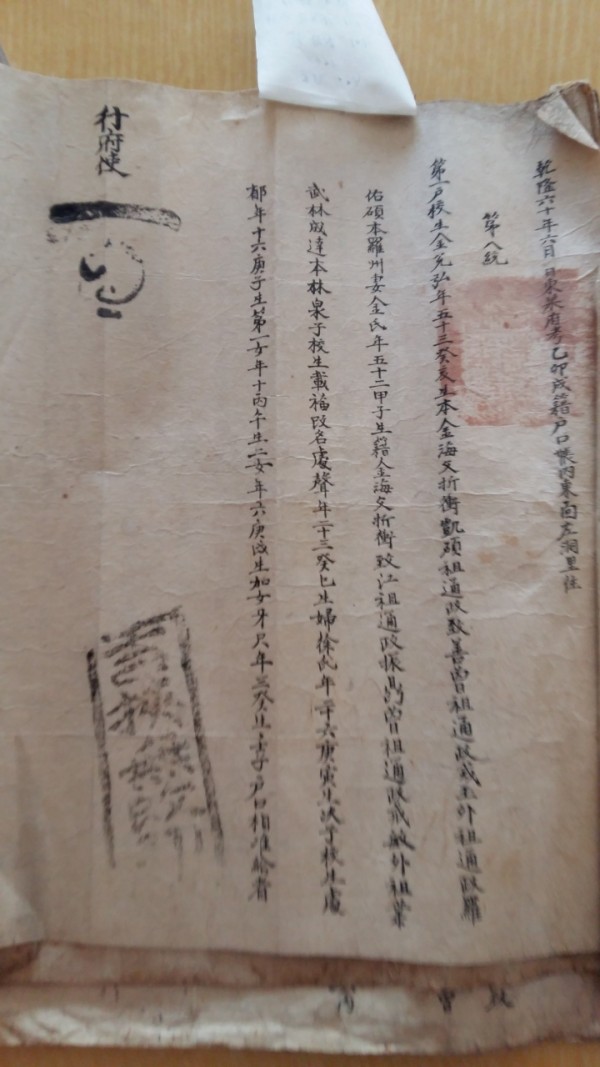 乾隆六十年六月 日東萊府考乙卯成籍戶口帳內東面左洞里住
第八統
第一戶校生金兌弘年五十三癸亥生本金海父折衝凱碩祖通政致善曾祖通政戒玉外祖通政羅
佑碩本羅州妻金氏年五十二甲子生籍金海父折衝致江祖通政振曾祖通政戒敏外祖
武林成達本林泉子校生載福改名處聲年二十三癸巳生婦徐氏年二十六庚寅生次子校生處
郁年十六庚子生第一女年十丙午生二女年六庚戌生加女牙只年三癸丑生壬子戶口相准給者
行府使